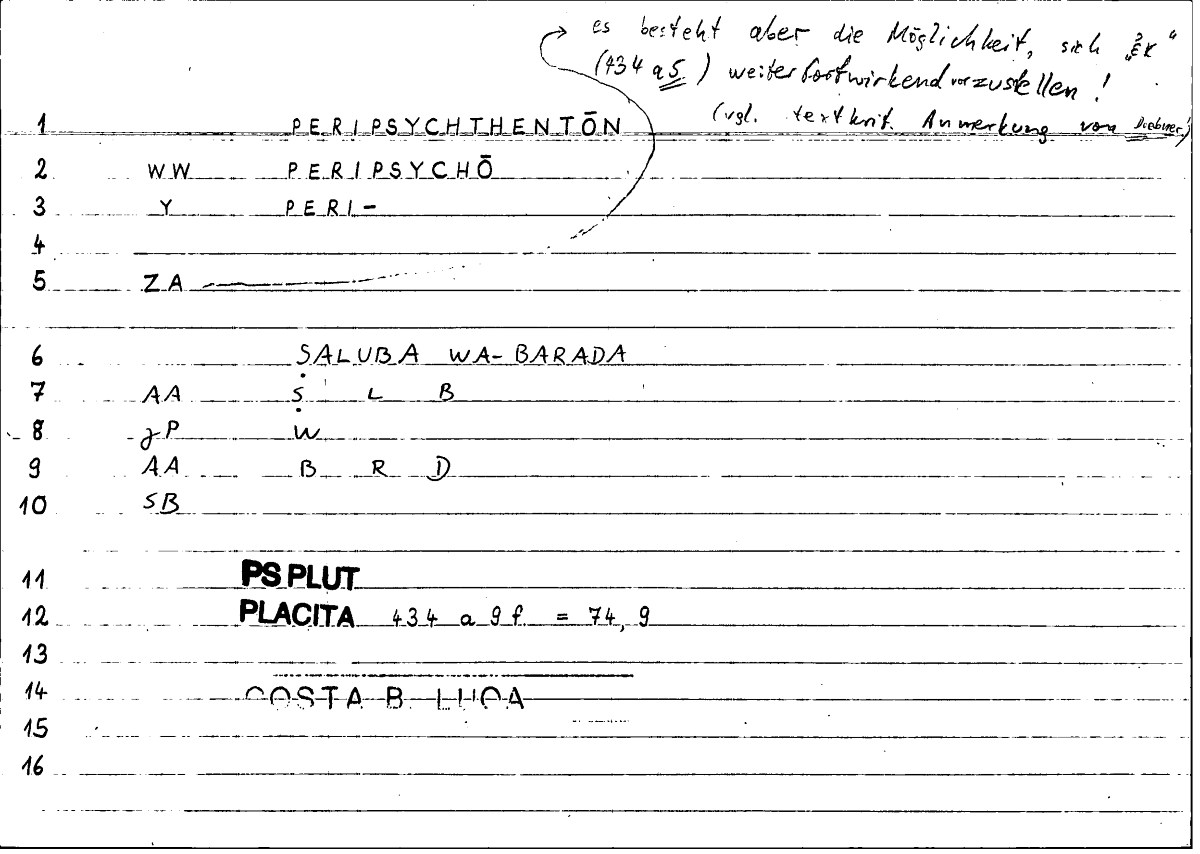 es besteht aber die Möglichkeit, sich „ἐκ“
(434 a 5) weiter fortwirkend vorzustellen!
(vgl. textkrit. Anmerkung von Diebner!)
1 PERIPSYCHTHENTŌN
2 WW PERIPSYCHŌ
3 Y PERI-
4
5 ZA
6 ṢALUBA WA-BARADA
7 AA Ṣ L B
8 γP W
9 AA B R D
10 SB
11 PS PLUT
12 PLACITA 434 a 9 f. = 74, 9
13
14 COSTA B LUCA
15
16